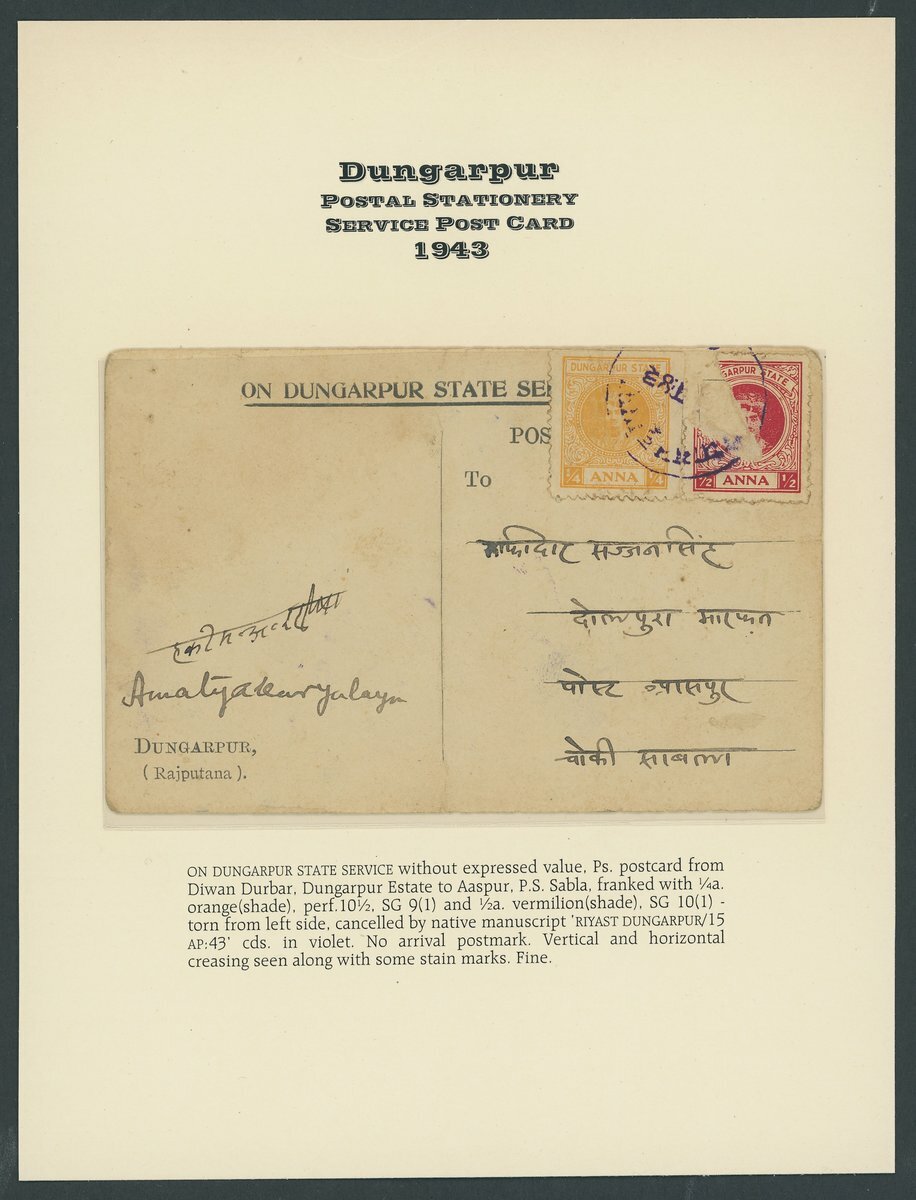 Dungarpur
POSTAL STATIONERY
SERVICE POST CARD
1943
ON DUNGARPUR STATE SE
POS
To
DUNGARPUR STATE
1/4 ANNA 1/4
GARPUR STATE
1/2 ANNA 1/2
माफीदार सज्जनसिंह
दोलपुरा मारफत
पोस्ट आसपुर
चोकी साबला
Amatya Karyalaya
DUNGARPUR,
(Rajputana).
ON DUNGARPUR STATE SERVICE without expressed value, Ps. postcard from
Diwan Durbar, Dungarpur Estate to Aaspur, P.S. Sabla, franked with ¼a.
orange(shade), perf.10½, SG 9(1) and ½a. vermilion(shade), SG 10(1) -
torn from left side, cancelled by native manuscript 'RIYAST DUNGARPUR/15
AP:43' cds. in violet. No arrival postmark. Vertical and horizontal
creasing seen along with some stain marks. Fine.